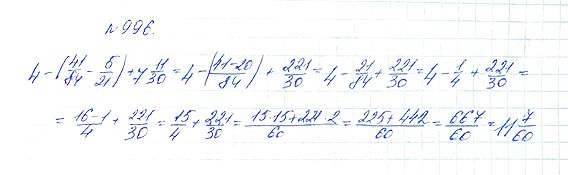 №996.
4 - (41/84 - 5/21) + 7 11/30 = 4 - (41-20/84) + 221/30 = 4 - 21/84 + 221/30 = 4 - 1/4 + 221/30 =
= 16-1/4 + 221/30 = 15/4 + 221/30 = 15·15+221·2/60 = 225+442/60 = 667/60 = 11 7/60